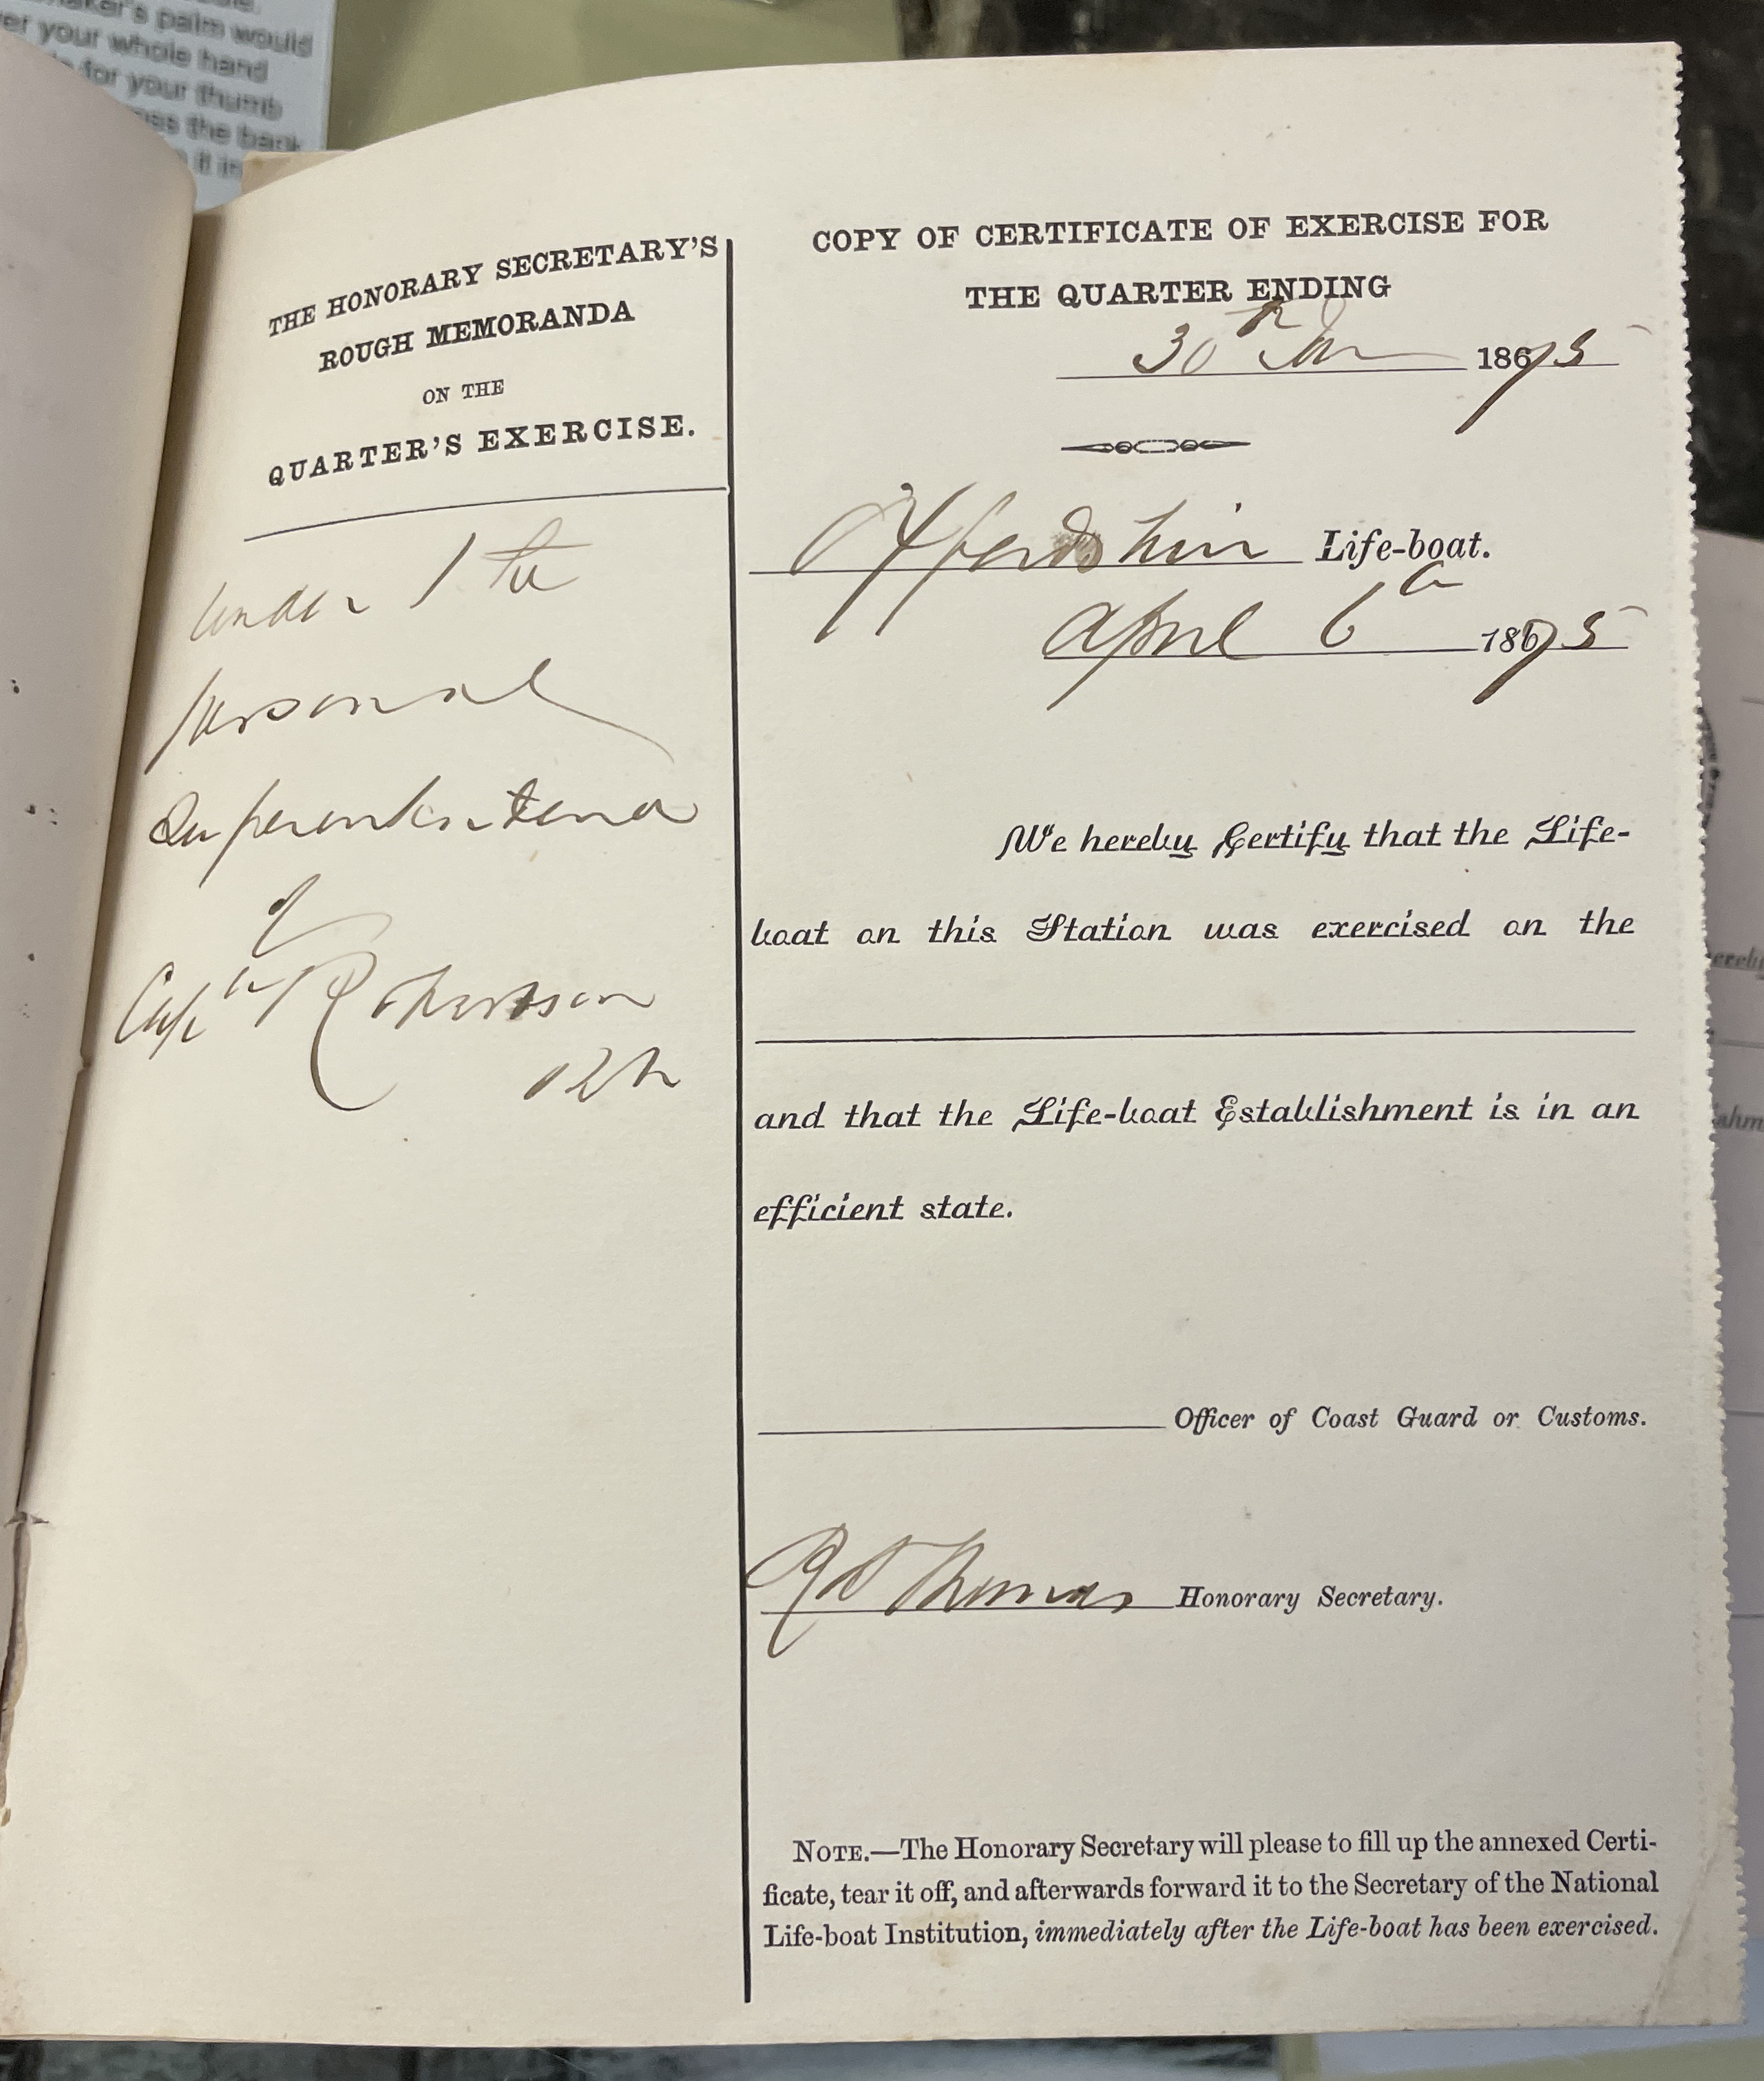 maker's palm would
your whole hand
for your thumb
the back
it in
THE HONORARY SECRETARY'S
ROUGH MEMORANDA
ON THE
QUARTER'S EXERCISE.
under the
personal
Superintend
of
Captn Robertson
RN
COPY OF CERTIFICATE OF EXERCISE FOR
THE QUARTER ENDING
30th Jun 1875
Oxfordshire Life-boat.
April 6th 1875
We hereby Certify that the Life-
boat on this Station was exercised on the
and that the Life-boat Establishment is in an
efficient state.
Officer of Coast Guard or Customs.
Thomas Honorary Secretary.
NOTE.—The Honorary Secretary will please to fill up the annexed Certi-
ficate, tear it off, and afterwards forward it to the Secretary of the National
Life-boat Institution, immediately after the Life-boat has been exercised.